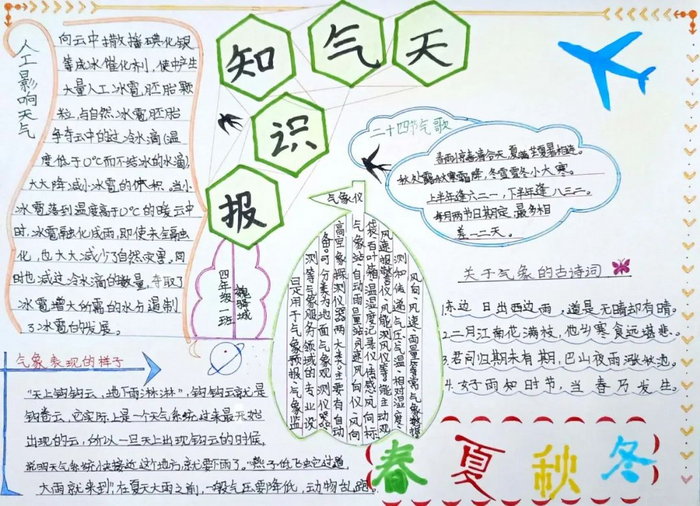 天气知识报
人工影响天气
向云中撒播碘化银
等成冰催化剂，使中产生
大量人工冰雹胚胎颗
粒，与自然冰雹胚胎
争夺云中的过冷水滴(温
度低于0℃而不结冰的水滴)
大大降减小冰雹的体积。当小
冰雹落到温度高于0℃的暖云中
时，冰雹融化成雨，即使未全融
化，也大大减少了自然灾害，同
时也减过冷水滴的数量，夺取了
冰雹增大所需的水分遏制
了冰雹的发展。
四年级一班
二十四节气歌
春雨惊春清谷天，夏满芒夏暑相连。
秋处露秋寒霜降，冬雪雪冬小大寒。
上半年逢六二一，下半年逢八二三。
每月两节日期定，最多相
差一二天。
气象仪
风向、风速、雨量等常气象数据
测如传递气压气温、相对湿度、
风速报警仪、风能测风仪等。能主动观
袋有叶箱温湿度记录仪、传感风向标
气象站、自动雨量站风速风向仪、风向
高空气象探测仪器两大类。主要有自动
备。可分类为地面气象观测仪器
测等气象服务领域的专业设
是用于气象预报、气象监
关于气象的古诗词
1.东边日出西边雨，道是无晴却有晴。
2.二月江南花满枝，他乡寒食远堪悲。
3.君问归期未有期，巴山夜雨涨秋池。
4.好雨知时节，当春乃发生。
气象表现的样子
"天上钩钩云，地下雨淋淋"，钩钩云就是
钩卷云，它实际上是一个天气系统过来最先
出现的云，所以一旦天上出现钩云的时候，
说明天气系统快接近这个地方，就要下雨了。"燕子低飞
大雨就来到"在夏天大雨之前，一般气压要降低，动物乱跑。
春夏秋冬